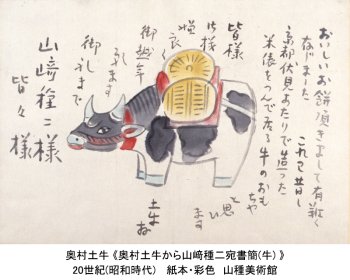 おいしいお餅頂きまして有難く
なじました これハ昔し
京都伏見あたりで造った
米俵をつんで居る牛のおも
ちや
と思ひ
ます
土牛拝
皆様
御機嫌
良く
御越年
祈します
御礼まで
山﨑種二様
皆々様
奥村土牛 《奥村土牛から山﨑種二宛書簡(牛) 》
20世紀(昭和時代) 紙本･彩色 山種美術館